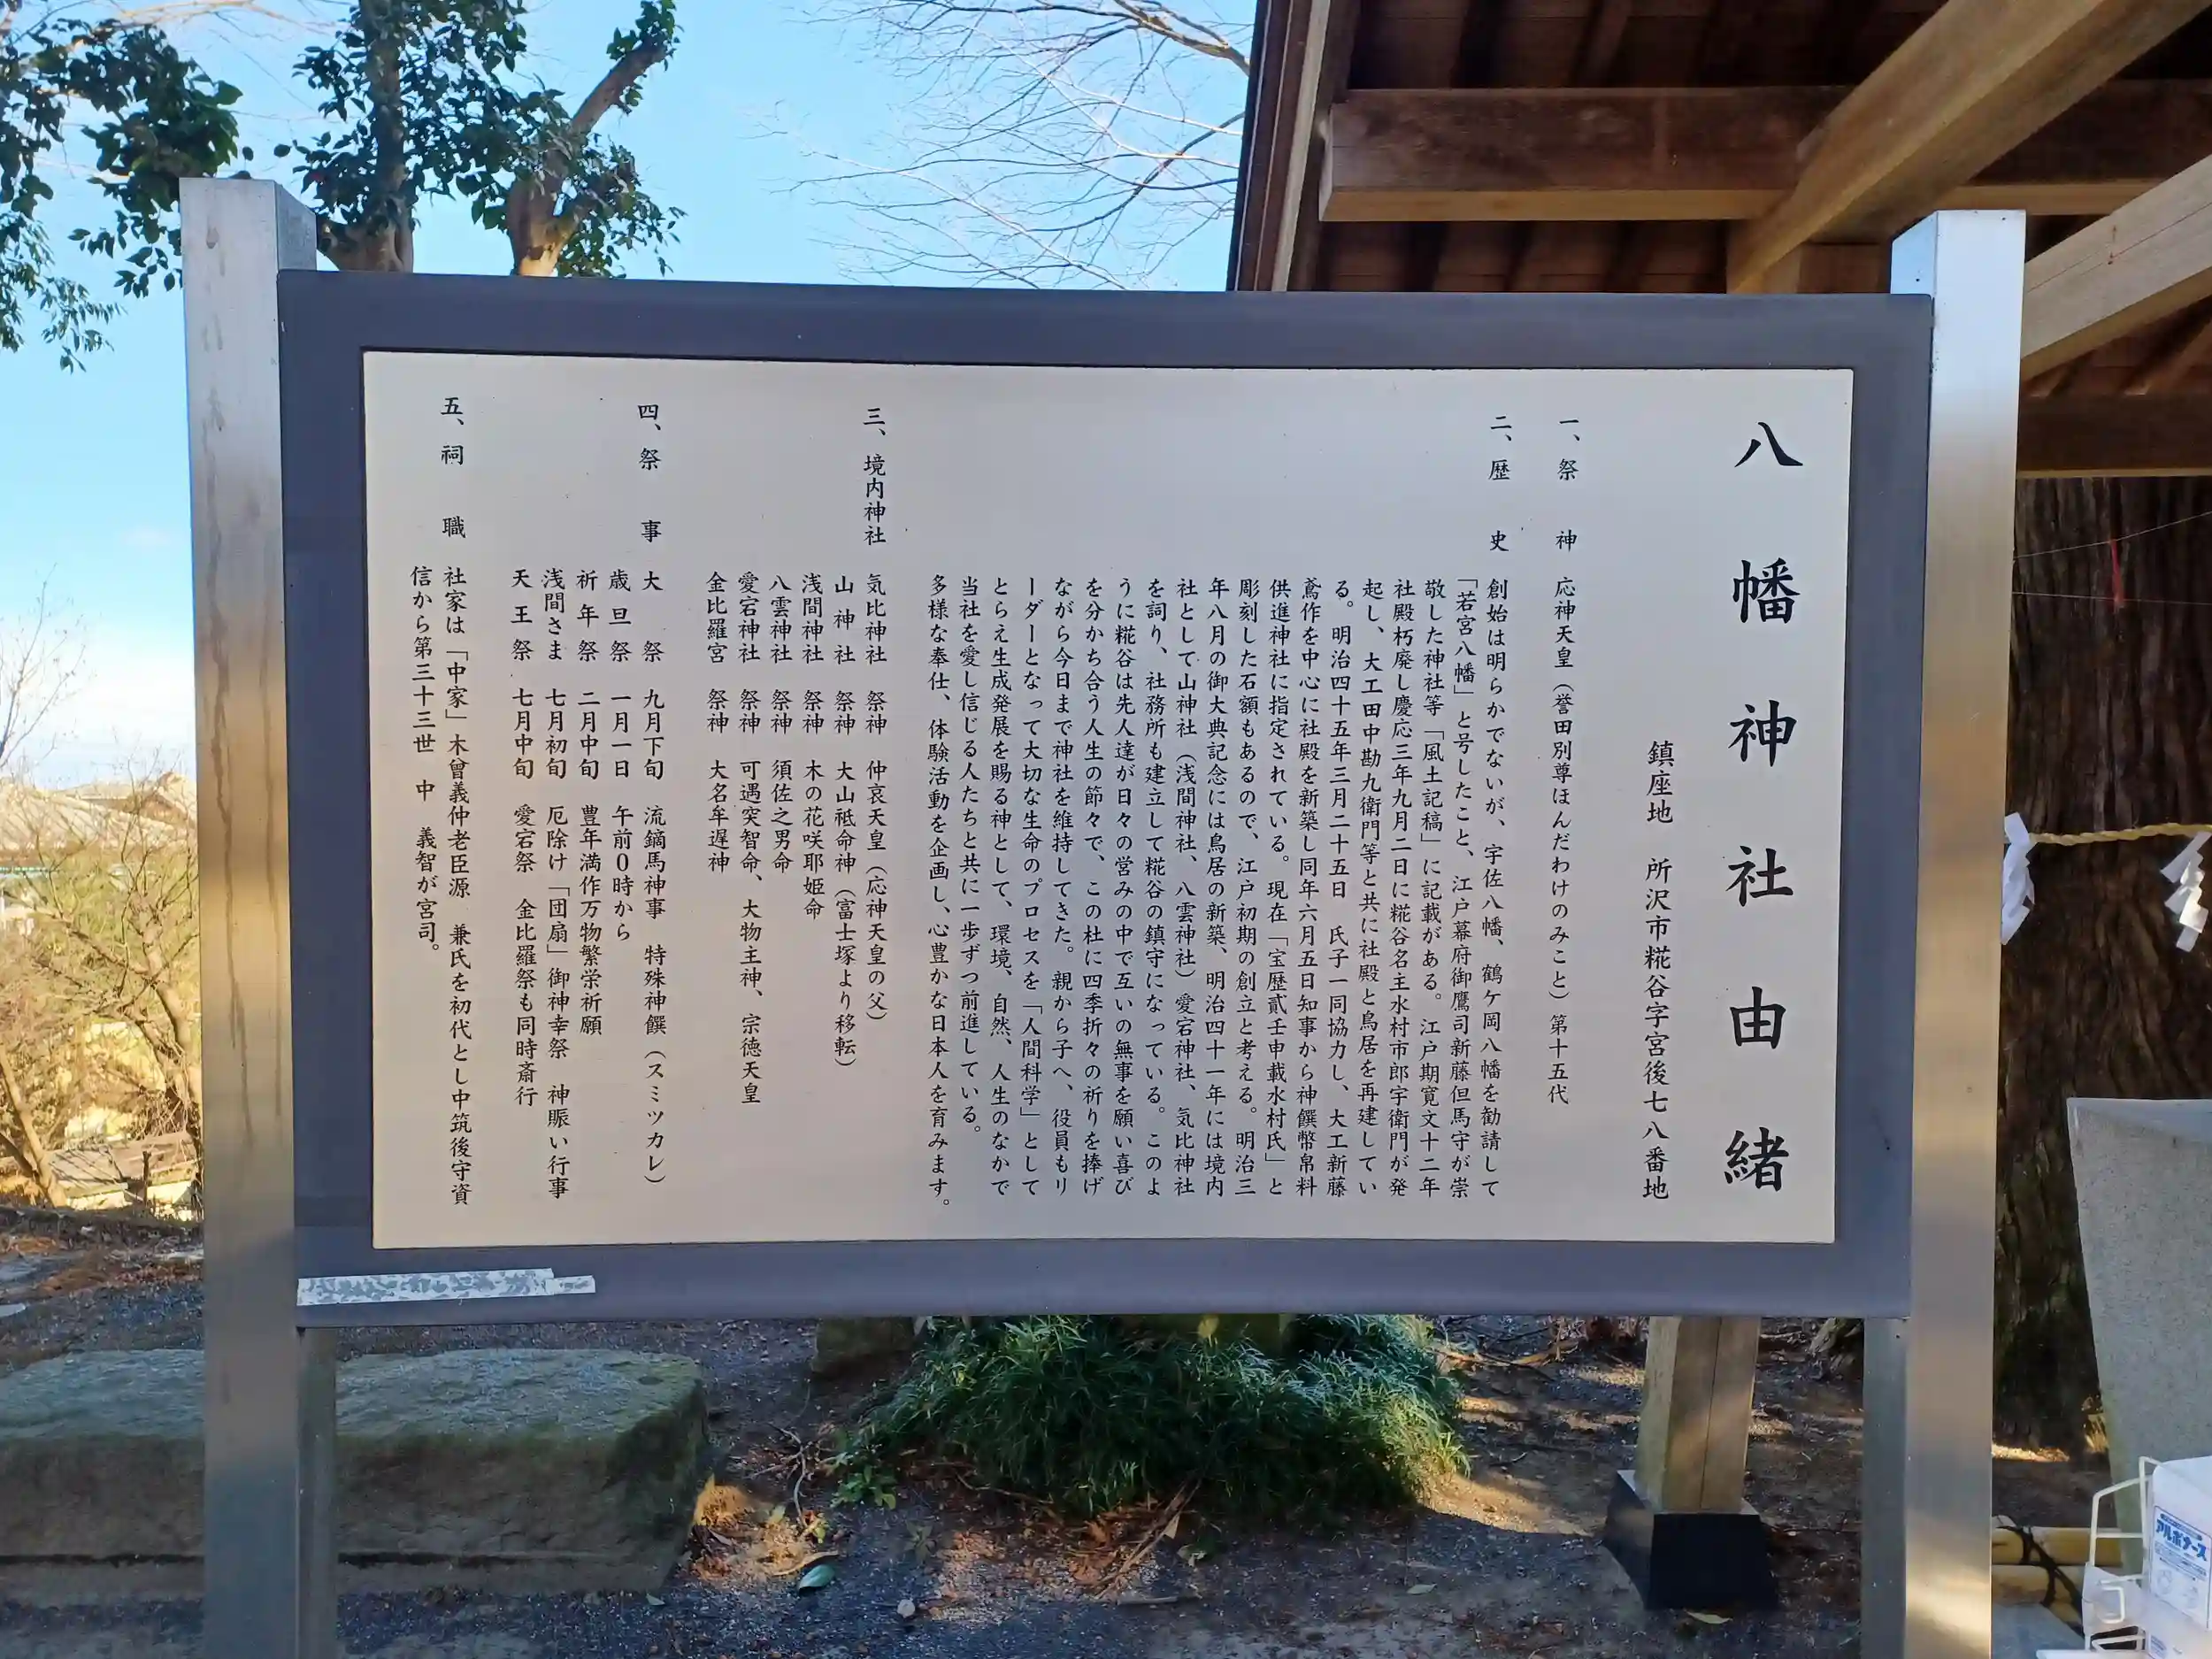 八幡神社由緒
鎮座地　所沢市糀谷字宮後七八番地
一、祭　神　応神天皇（誉田別尊ほんだわけのみこと）第十五代
二、歴　史　創始は明らかでないが、宇佐八幡、鶴ケ岡八幡を勧請して
「若宮八幡」と号したこと、江戸幕府御鷹司新藤但馬守が崇
敬した神社等「風土記稿」に記載がある。江戸期寛文十二年
社殿朽廃し慶応三年九月二日に糀谷名主水村市郎宇衛門が発
起し、大工田中勘九衛門等と共に社殿と鳥居を再建してい
る。明治四十五年三月二十五日　氏子一同協力し、大工新藤
鳶作を中心に社殿を新築し同年六月五日知事から神饌幣帛料
供進神社に指定されている。現在「宝歴貳壬申載水村氏」と
彫刻した石額もあるので、江戸初期の創立と考える。明治三
年八月の御大典記念には鳥居の新築、明治四十一年には境内
社として山神社（浅間神社、八雲神社）愛宕神社、気比神社
を祠り、社務所も建立して糀谷の鎮守になっている。このよ
うに糀谷は先人達が日々の営みの中で互いの無事を願い喜び
を分かち合う人生の節々で、この杜に四季折々の祈りを捧げ
ながら今日まで神社を維持してきた。親から子へ、役員もリ
ーダーとなって大切な生命のプロセスを「人間科学」として
とらえ生成発展を賜る神として、環境、自然、人生のなかで
当社を愛し信じる人たちと共に一歩ずつ前進している。
多様な奉仕、体験活動を企画し、心豊かな日本人を育みます。
三、境内神社　気比神社　祭神　仲哀天皇（応神天皇の父）
山神社　祭神　大山祇命神（富士塚より移転）
浅間神社　祭神　木の花咲耶姫命
八雲神社　祭神　須佐之男命
愛宕神社　祭神　可遇突智命、大物主神、宗徳天皇
金比羅宮　祭神　大名牟遅神
四、祭　事　大　祭　九月下旬　流鏑馬神事　特殊神饌（スミツカレ）
歳旦祭　一月一日　午前0時から
祈年祭　二月中旬　豊年満作万物繁栄祈願
浅間さま　七月初旬　厄除け「団扇」御神幸祭　神賑い行事
天王祭　七月中旬　愛宕祭　金比羅祭も同時斎行
五、祠　職　社家は「中家」木曾義仲老臣源　兼氏を初代とし中筑後守資
信から第三十三世　中　義智が宮司。
アルボナース